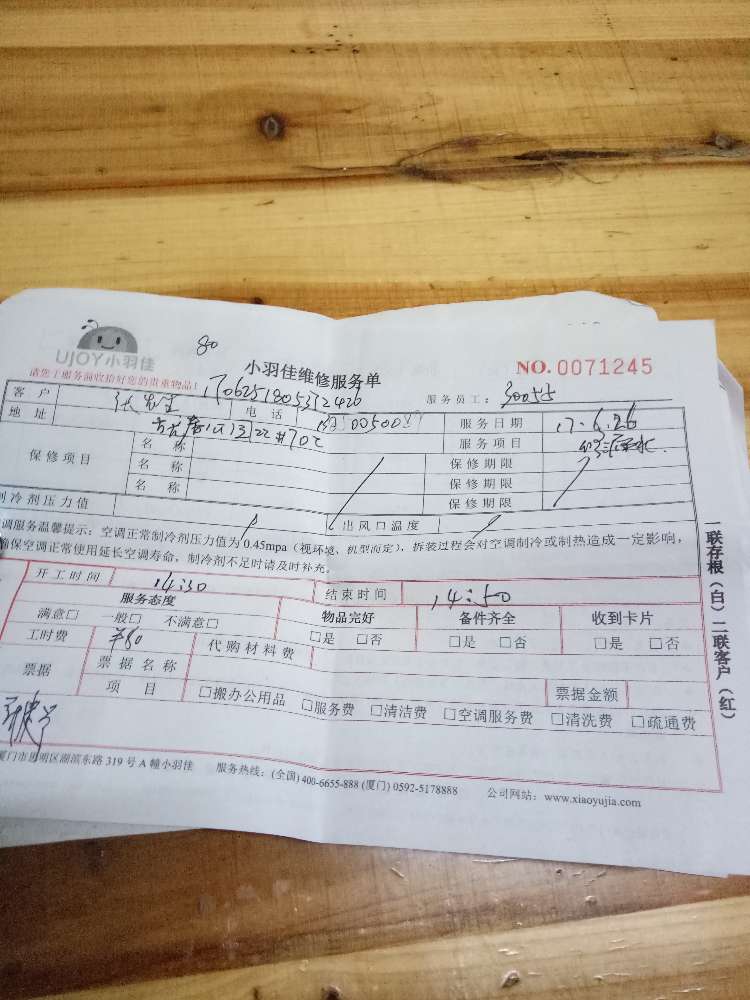 80
UJOY小羽佳
小羽佳维修服务单
NO. 0071245
请您于服务前收拾好您的贵重物品!
170625180532426
服务员工: 30055
客 户 张先生 电 话 服务日期 17.6.26
地 址 服务项目
保修项目
名 称 保修期限
名 称 保修期限
名 称 保修期限
制冷剂压力值 出风口温度
调服务温馨提示:空调正常制冷剂压力值为 0.45mpa(视环境、机型而定),拆装过程会对空调制冷或制热造成一定影响,
确保空调正常使用延长空调寿命,制冷剂不足时请及时补充。
开工时间 14:30 结束时间 14:50
服务态度 物品完好 备件齐全 收到卡片
满意□ 一般□ 不满意□ □是 □否 □是 □否 □是 □否
工时费 ¥80 代购材料费
票据 票据名称 票据金额
项 目 □搬办公用品 □服务费 □清洁费 □空调服务费 □清洗费 □疏通费
厦门市思明区湖滨东路 319 号 A 幢小羽佳 服务热线:(全国) 400-6655-888 (厦门) 0592-5178888 公司网站:www.xiaoyujia.com
一联存根(白)二联客户(红)